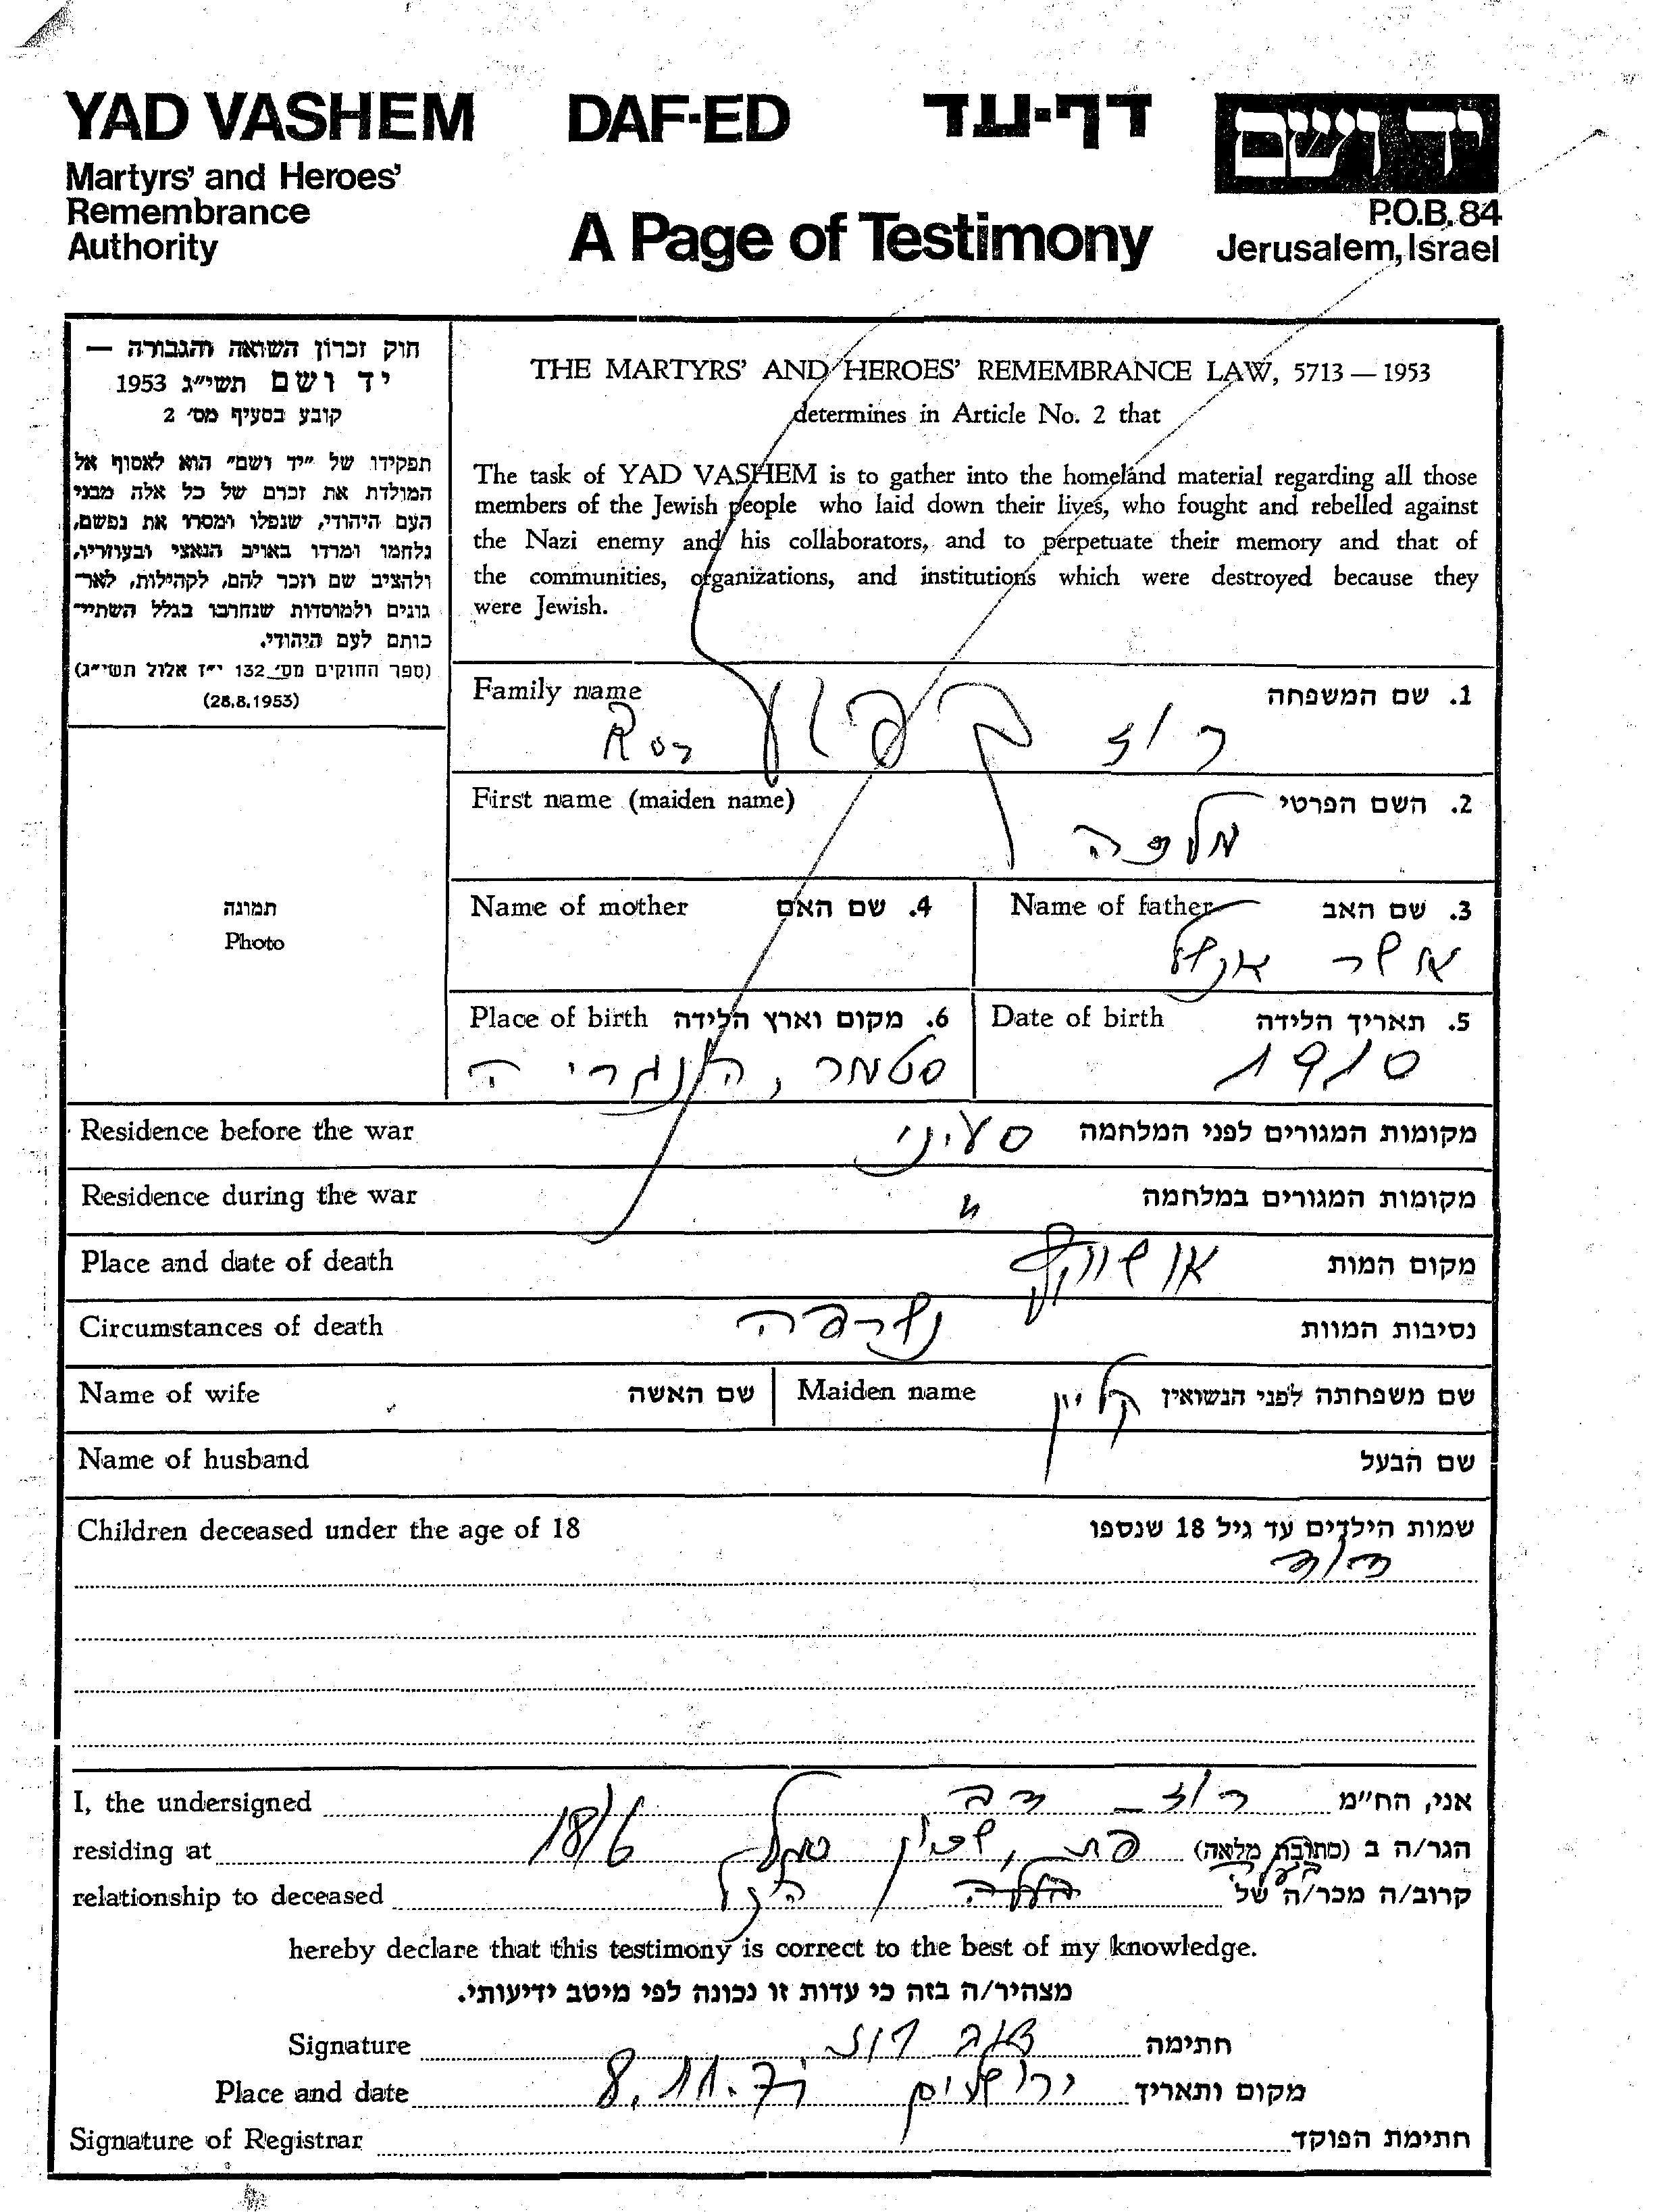 YAD VASHEM DAF-ED דף-עד יד ושם
Martyrs' and Heroes'
Remembrance
Authority
A Page of Testimony
P.O.B. 84
Jerusalem, Israel
חוק זכרון השואה והגבורה —
יד ושם תשי״ג 1953
קובע בסעיף מס׳ 2
תפקידו של ״יד ושם״ הוא לאסוף אל
המולדת את זכרם של כל אלה מבני
העם היהודי, שנפלו ומסרו את נפשם,
נלחמו ומרדו באויב הנאצי ובעוזריו,
ולהציב שם וזכר להם, לקהילות, לאר־
גונים ולמוסדות שנחרבו בגלל השתיי־
כותם לעם היהודי.
(ספר החוקים מס׳ 132 י״ז אלול תשי״ג)
(28.8.1953)
THE MARTYRS' AND HEROES' REMEMBRANCE LAW, 5713 — 1953
determines in Article No. 2 that
The task of YAD VASHEM is to gather into the homeland material regarding all those
members of the Jewish people who laid down their lives, who fought and rebelled against
the Nazi enemy and his collaborators, and to perpetuate their memory and that of
the communities, organizations, and institutions which were destroyed because they
were Jewish.
Family name 1. שם המשפחה
רוז
First name (maiden name) 2. השם הפרטי
מלכה
Name of mother 4. שם האם Name of father 3. שם האב
אשר אנשל
Place of birth 6. מקום וארץ הלידה Date of birth 5. תאריך הלידה
סטמר, הונגריה 1910
תמונה
Photo
Residence before the war מקומות המגורים לפני המלחמה
Residence during the war מקומות המגורים במלחמה
״
Place and date of death מקום המות
אושוויץ
Circumstances of death נסיבות המוות
נשרפה
Name of wife שם האשה Maiden name שם משפחתה לפני הנשואין
קליין
Name of husband שם הבעל
Children deceased under the age of 18 שמות הילדים עד גיל 18 שנספו
I, the undersigned אני, הח״מ רוז דב
residing at הגר/ה ב (כתובת מלאה) 18/6
relationship to deceased קרוב/ה מכר/ה של
hereby declare that this testimony is correct to the best of my knowledge.
מצהיר/ה בזה כי עדות זו נכונה לפי מיטב ידיעותי.
Signature חתימה רוז
Place and date מקום ותאריך ירושלים 8.11.
Signature of Registrar חתימת הפוקד